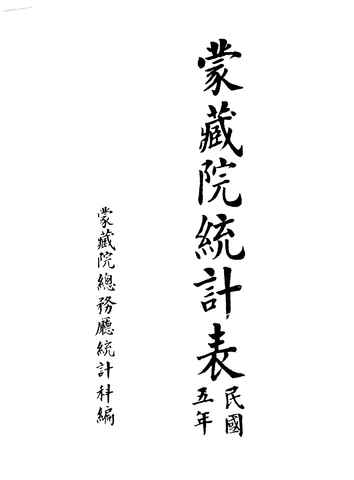 蒙藏院統計表
民國
五年
蒙藏院總務廳統計科編